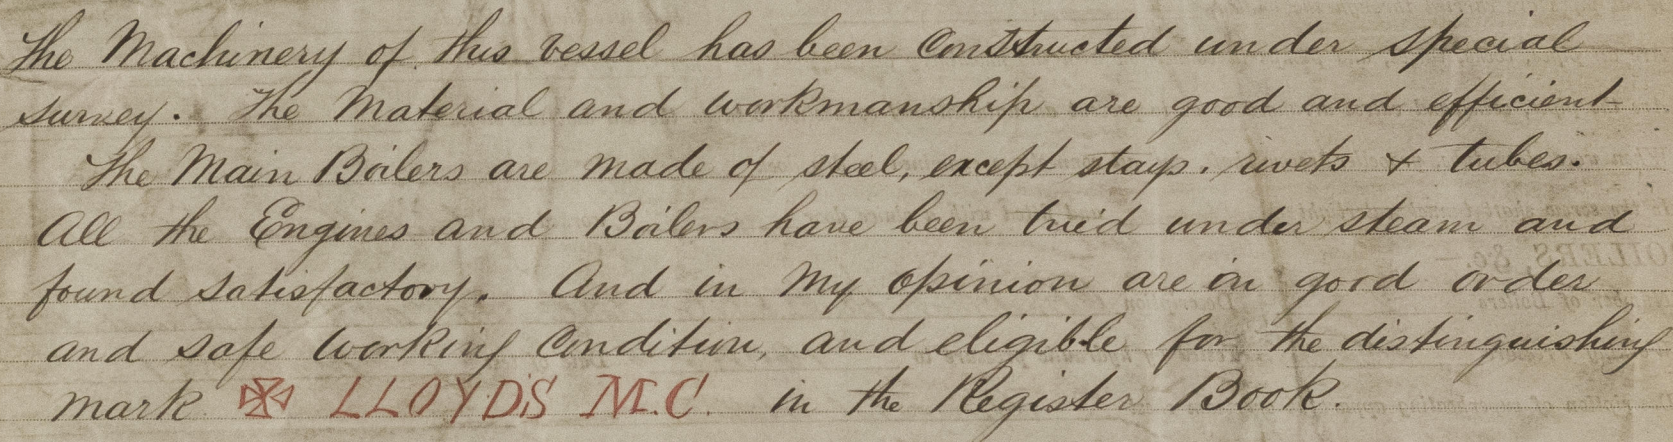 The Machinery of this vessel has been Constructed under special
survey. The Material and workmanship are good and efficient
The Main Boilers are made of steel, except stays. rivets & tubes.
All the Engines and Boilers have been tried under steam and
found satisfactory. And in My opinion are in good order
and safe working Condition, and eligible for the distinguishing
mark ✠ LLOYD'S M.C. in the Register Book.